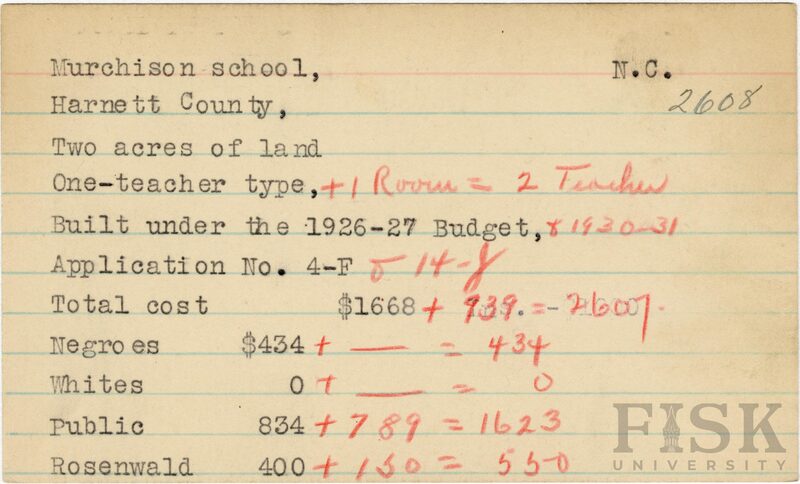 Murchison school, N.C.
2608
Harnett County,
Two acres of land
One-teacher type, +1 Room = 2 Teacher
Built under the 1926-27 Budget, & 1930-31
Application No. 4-F & 14-J
Total cost $1668 + 939 = 2607.
Negroes $434 + — = 434
Whites 0 + — = 0
Public 834 + 789 = 1623
Rosenwald 400 + 150 = 550
FISK
UNIVERSITY